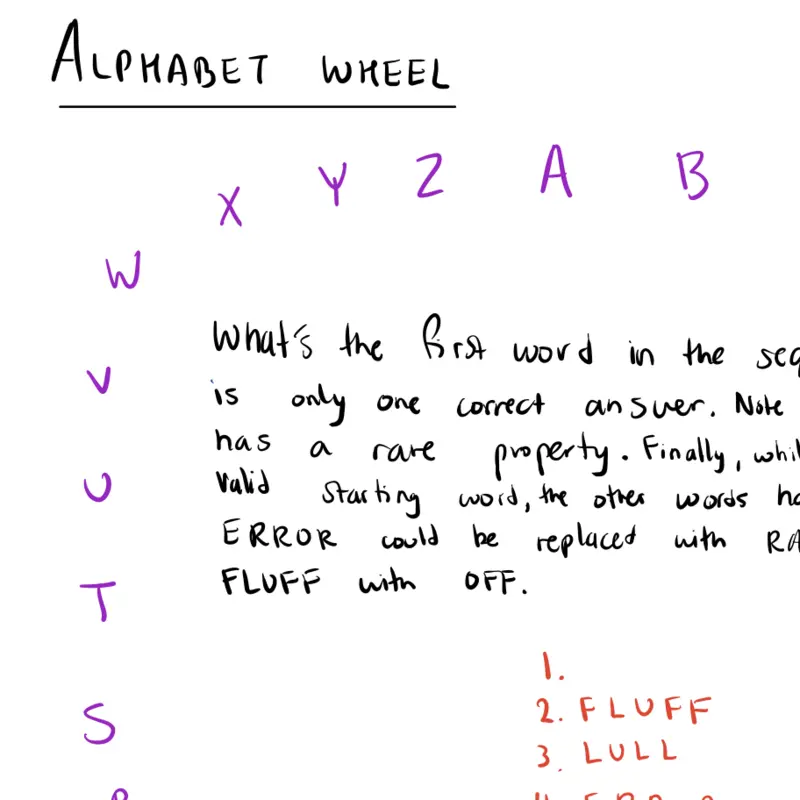 ALPHABET WHEEL
X Y Z A B
W
What's the first word in the
V
is only one correct answer. Note
has a rare property. Finally,
U
valid starting word, the other words
ERROR could be replaced with
T
FLUFF with OFF.
1.
S
2. FLUFF
3. LULL